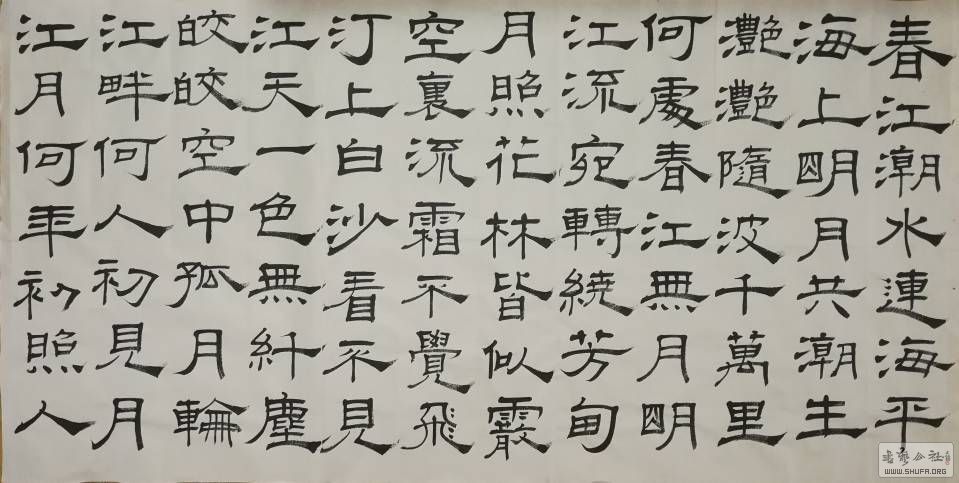 春江潮水連海平
海上明月共潮生
灧灧隨波千萬里
何處春江無月明
江流宛轉繞芳甸
月照花林皆似霰
空裏流霜不覺飛
汀上白沙看不見
江天一色無纤塵
皎皎空中孤月輪
江畔何人初見月
江月何年初照人
书法公社
WWW.SHUFA.ORG